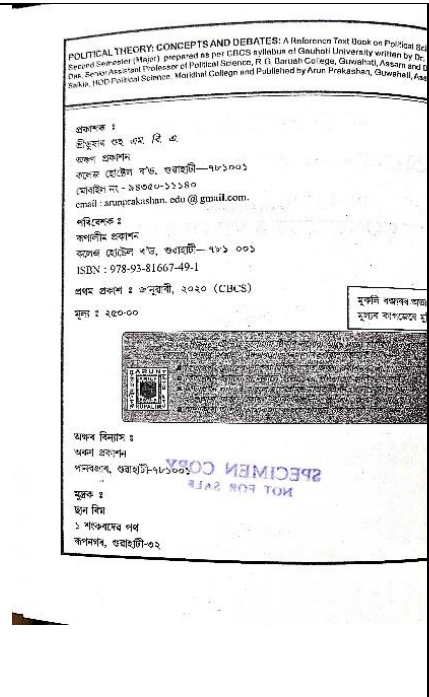 POLITICAL THEORY: CONCEPTS AND DEBATES: A Reference Text Book on Political
Second Semester (Major) prepared as per CBCS syllabus of Gauhati University written by Dr.
Das, Senior Assistant Professor of Political Science, R.G. Baruah College, Guwahati, Assam and
Saikia, HOD Political Science, Moridhal College and Published by Arun Prakashan, Guwahati,
প্ৰকাশক ঃ
শ্ৰীতুষাৰ গুহ এম. বি. এ.
অৰুণ প্ৰকাশন
কলেজ হোষ্টেল ৰ'ড, গুৱাহাটী—৭৮১০০১
মোবাইল নং - ৯৪৩৫০-১১১৪০
email : arunprakashan. edu @ gmail.com.
পৰিবেশক ঃ
ৰূপালীম প্ৰকাশন
কলেজ হোষ্টেল ৰ'ড, গুৱাহাটী— ৭৮১ ০০১
ISBN : 978-93-81667-49-1
প্ৰথম প্ৰকাশ ঃ জানুৱাৰী, ২০২০ (CBCS)
মূল্য ঃ ২৫০-০০
মুকলি বজাৰৰ
মূল্যৰ কাগজেৰে
ARUN
RUPALIM
অক্ষৰ বিন্যাস ঃ
অৰুণ প্ৰকাশন
পানবজাৰ, গুৱাহাটী-৭৮১০০১
SPECIMEN COPY
NOT FOR SALE
মুদ্ৰক ঃ
১ শংকৰদেৱ পথ
ৰূপনগৰ, গুৱাহাটী-৩২